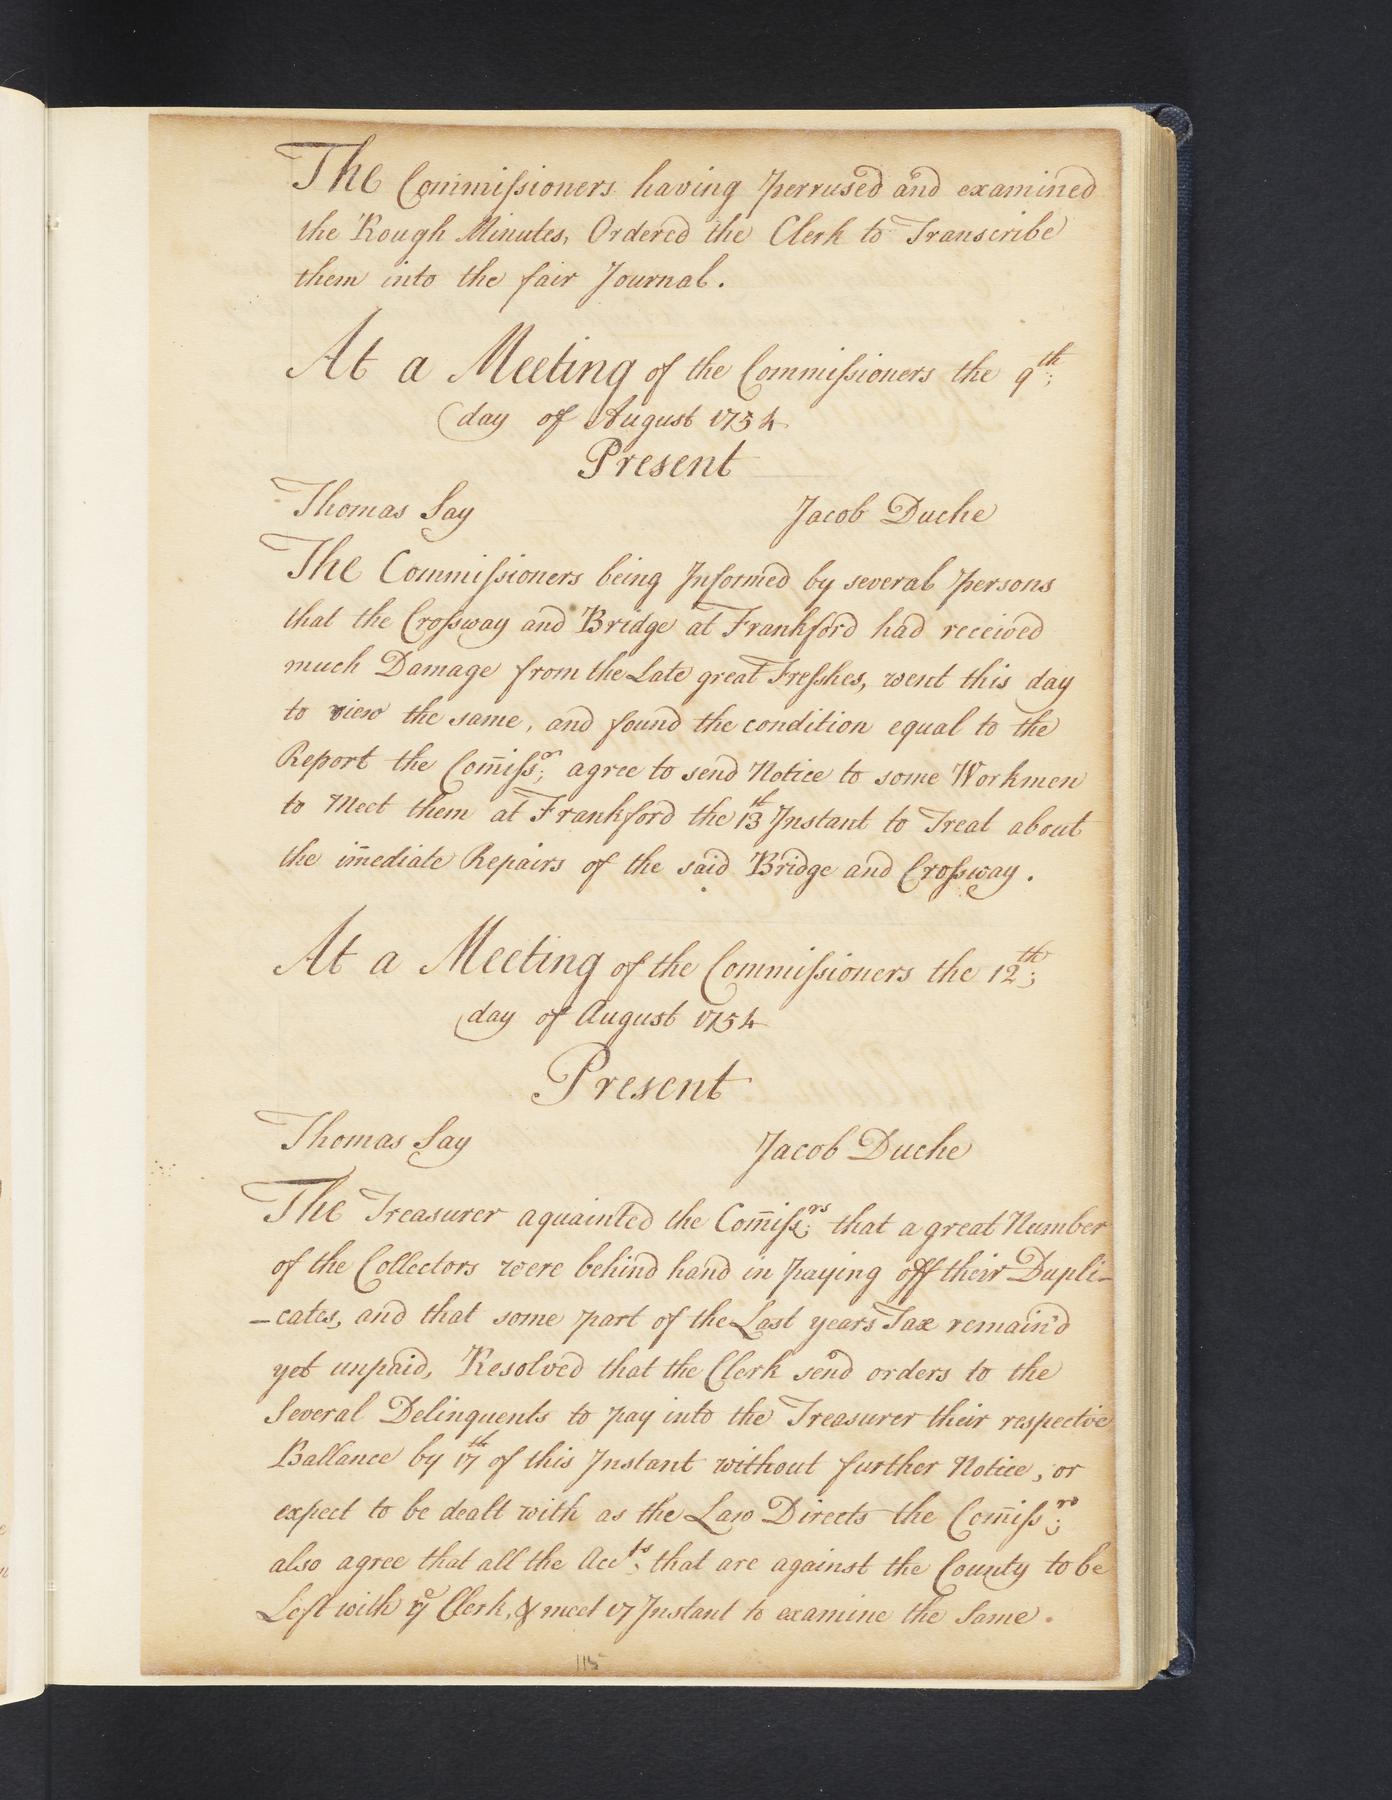 The Commiſsioners having perrused and examined
the Rough Minutes, Ordered the Clerk to Transcribe
them into the fair Journal.
At a Meeting of the Commiſsioners the 9th;
day of August 1754
Present
Thomas Say Jacob Duche
The Commiſsioners being Informed by several persons
that the Croſsway and Bridge at Frankford had received
much Damage from the Late great Freſshes, went this day
to view the same, and found the condition equal to the
Report the Com̄iſsr; agree to send Notice to some Workmen
to Meet them at Frankford the 13th Instant to Treat about
the im̄ediate Repairs of the said Bridge and Croſsway.
At a Meeting of the Commiſsioners the 12th;
day of August 1754
Present
Thomas Say Jacob Duche
The Treasurer aquainted the Com̄iſsrs; that a great Number
of the Collectors were behind hand in paying off their Dupli-
-cates, and that some part of the Last years Tax remain'd
yet unpaid, Resolved that the Clerk send orders to the
Several Delinquents to pay into the Treasurer their respective
Ballance by 17th of this Instant without further Notice, or
expect to be dealt with as the Law Directs the Com̄iſsrs;
also agree that all the Accts; that are against the County to be
Left with ye Clerk, & meet 17 Instant to examine the Same.
115